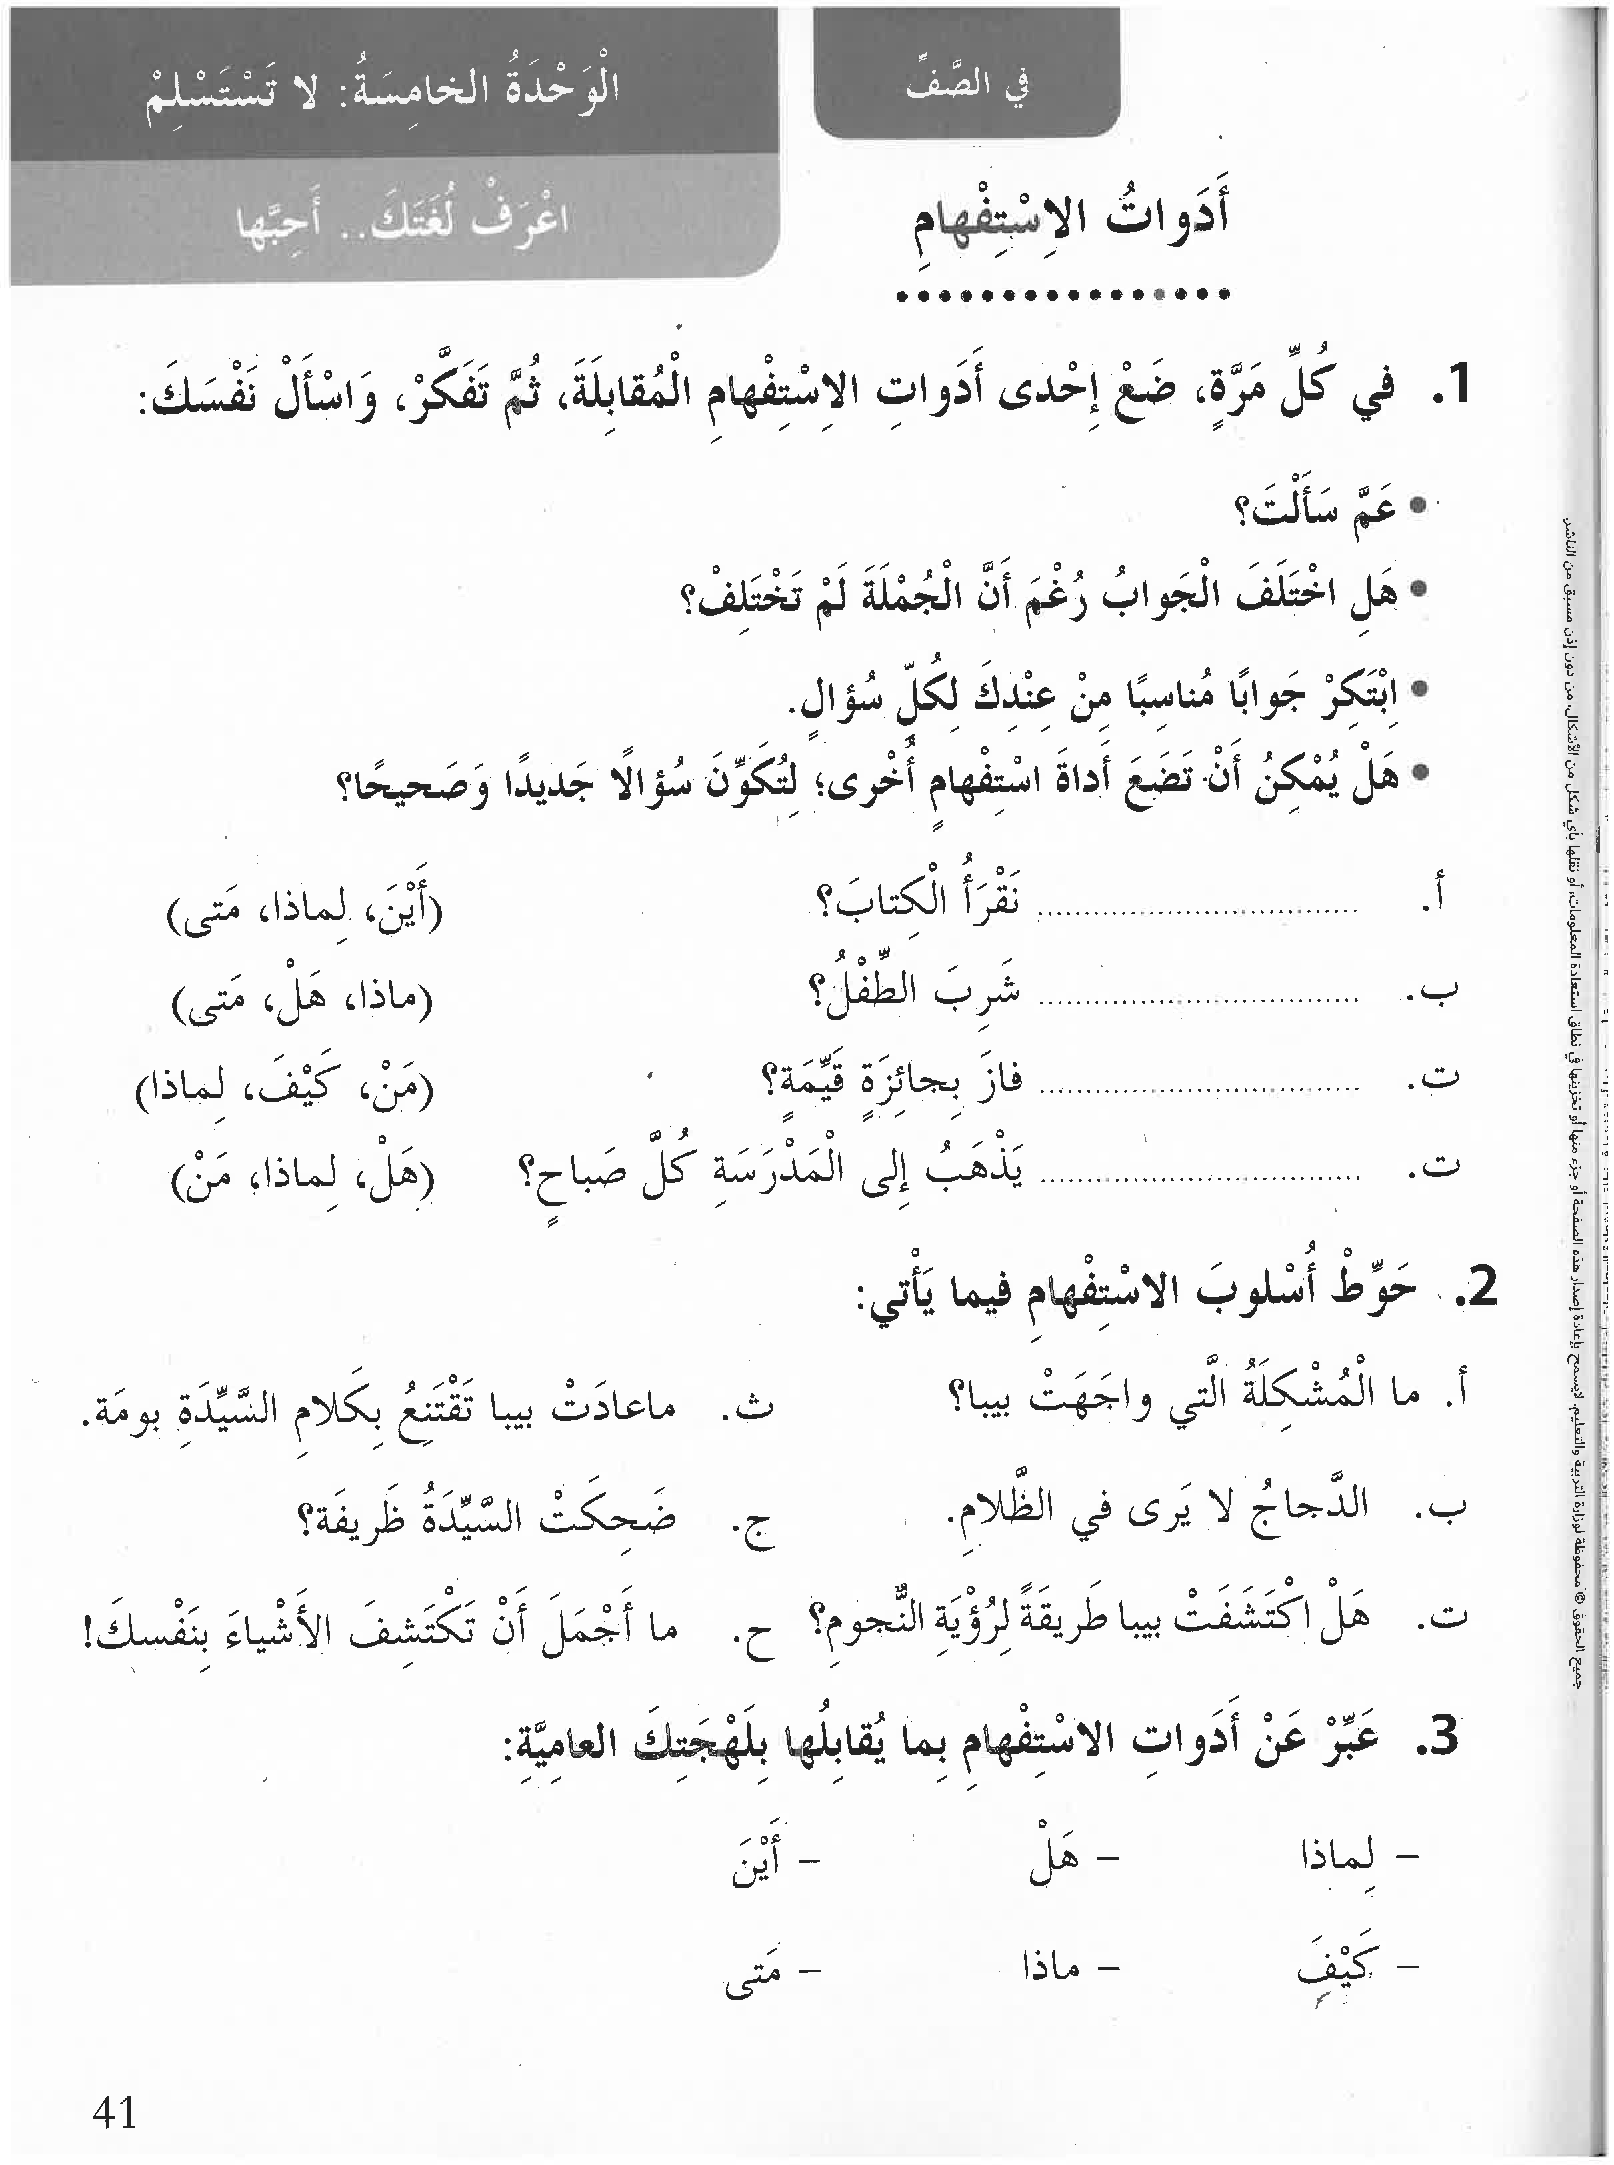 في الصَّفِّ
الْوَحْدَةُ الخامِسَةُ: لا تَسْتَسْلِمْ
اعْرَفْ لُغَتَكَ.. أَحِبَّها
أَدَواتُ الاِسْتِفْهامِ
1. في كُلِّ مَرَّةٍ، ضَعْ إِحْدى أَدَواتِ الاِسْتِفْهامِ الْمُقابِلَةَ، ثُمَّ تَفَكَّرْ، وَاسْأَلْ نَفْسَكَ:
• عَمَّ سَأَلْتَ؟
• هَلِ اخْتَلَفَ الْجَوابُ رُغْمَ أَنَّ الْجُمْلَةَ لَمْ تَخْتَلِفْ؟
• اِبْتَكِرْ جَوابًا مُناسِبًا مِنْ عِنْدِكَ لِكُلِّ سُؤالٍ.
• هَلْ يُمْكِنُ أَنْ تَضَعَ أَداةَ اسْتِفْهامٍ أُخْرى؛ لِتُكَوِّنَ سُؤالًا جَديدًا وَصَحيحًا؟
أ. ................................ نَقْرَأُ الْكِتابَ؟ (أَيْنَ، لِماذا، مَتى)
ب. ................................ شَرِبَ الطِّفْلُ؟ (ماذا، هَلْ، مَتى)
ت. ................................ فازَ بِجائِزَةٍ قَيِّمَةٍ؟ (مَنْ، كَيْفَ، لِماذا)
ت. ................................ يَذْهَبُ إِلى الْمَدْرَسَةِ كُلَّ صَباحٍ؟ (هَلْ، لِماذا، مَنْ)
2. حَوِّطْ أُسْلوبَ الاسْتِفْهامِ فيما يَأْتي:
أ. ما الْمُشْكِلَةُ الَّتي واجَهَتْ بيبا؟
ب. الدَّجاجُ لا يَرى في الظَّلامِ.
ت. هَلْ اكْتَشَفَتْ بيبا طَريقَةً لِرُؤْيَةِ النُّجومِ؟
ث. ماعادَتْ بيبا تَقْتَنِعُ بِكَلامِ السَّيِّدَةِ بومَة.
ج. ضَحِكَتْ السَّيِّدَةُ ظَريفَة؟
ح. ما أَجْمَلَ أَنْ تَكْتَشِفَ الأَشْياءَ بِنَفْسكَ!
3. عَبِّرْ عَنْ أَدَواتِ الاسْتِفْهامِ بِما يُقابِلُها بِلَهْجَتِكَ العامِيَّةِ:
– لِماذا – هَلْ – أَيْنَ
– كَيْفَ – ماذا – مَتى
41
جميع الحقوق © محفوظة لوزارة التربية والتعليم. لايسمح بإعادة إصدار هذه الصفحة أو جزء منها أو تخزينها في نطاق استعادة المعلومات، أو نقلها بأي شكل من الأشكال، من دون إذن مسبق من الناشر.